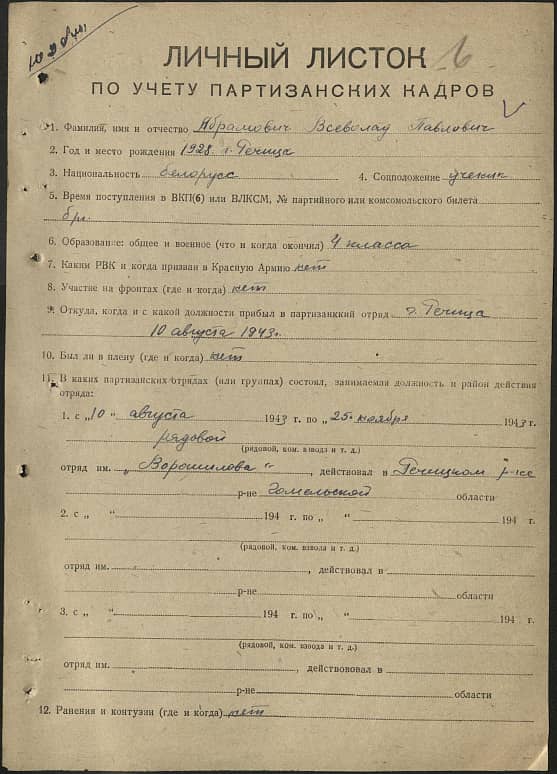 ЛИЧНЫЙ ЛИСТОК
ПО УЧЕТУ ПАРТИЗАНСКИХ КАДРОВ
1. Фамилия, имя и отчество Абрамович Всеволад Павлович
2. Год и место рождения 1928 г. Речица
3. Национальность белорусс 4. Соцположение ученик
5. Время поступления в ВКП(б) или ВЛКСМ, № партийного или комсомольского билета
6. Образование: общее и военное (что и когда окончил) 4 класса
7. Каким РВК и когда призван в Красную Армию нет
8. Участие на фронтах (где и когда) нет
9. Откуда, когда и с какой должности прибыл в партизанккий отряд г. Речица
10 августа 1943г.
10. Был ли в плену (где и когда) нет
11. В каких партизанских отрядах (или группах) состоял, занимаемая должность и район действия
отряда:
1. с „10 “ августа 1943 г. по „25 ноября 1943 г.
рядовой
(рядовой, ком. взвода и т. д.)
отряд им. „Ворошилова“, действовал в Речицком р-не
р-не Гомельской области
2. с „ “ 194 г. по „ “ 194 г.
(рядовой, ком. взвола и т. д.)
отряд им. , действовал в
р-не области
3. с „ “ 194 г. по „ “ 194 г.
(рядовой, ком. взвода и т. д.)
отряд им. , действововал в
р-не области
12. Ранения и контузии (где и когда) нет